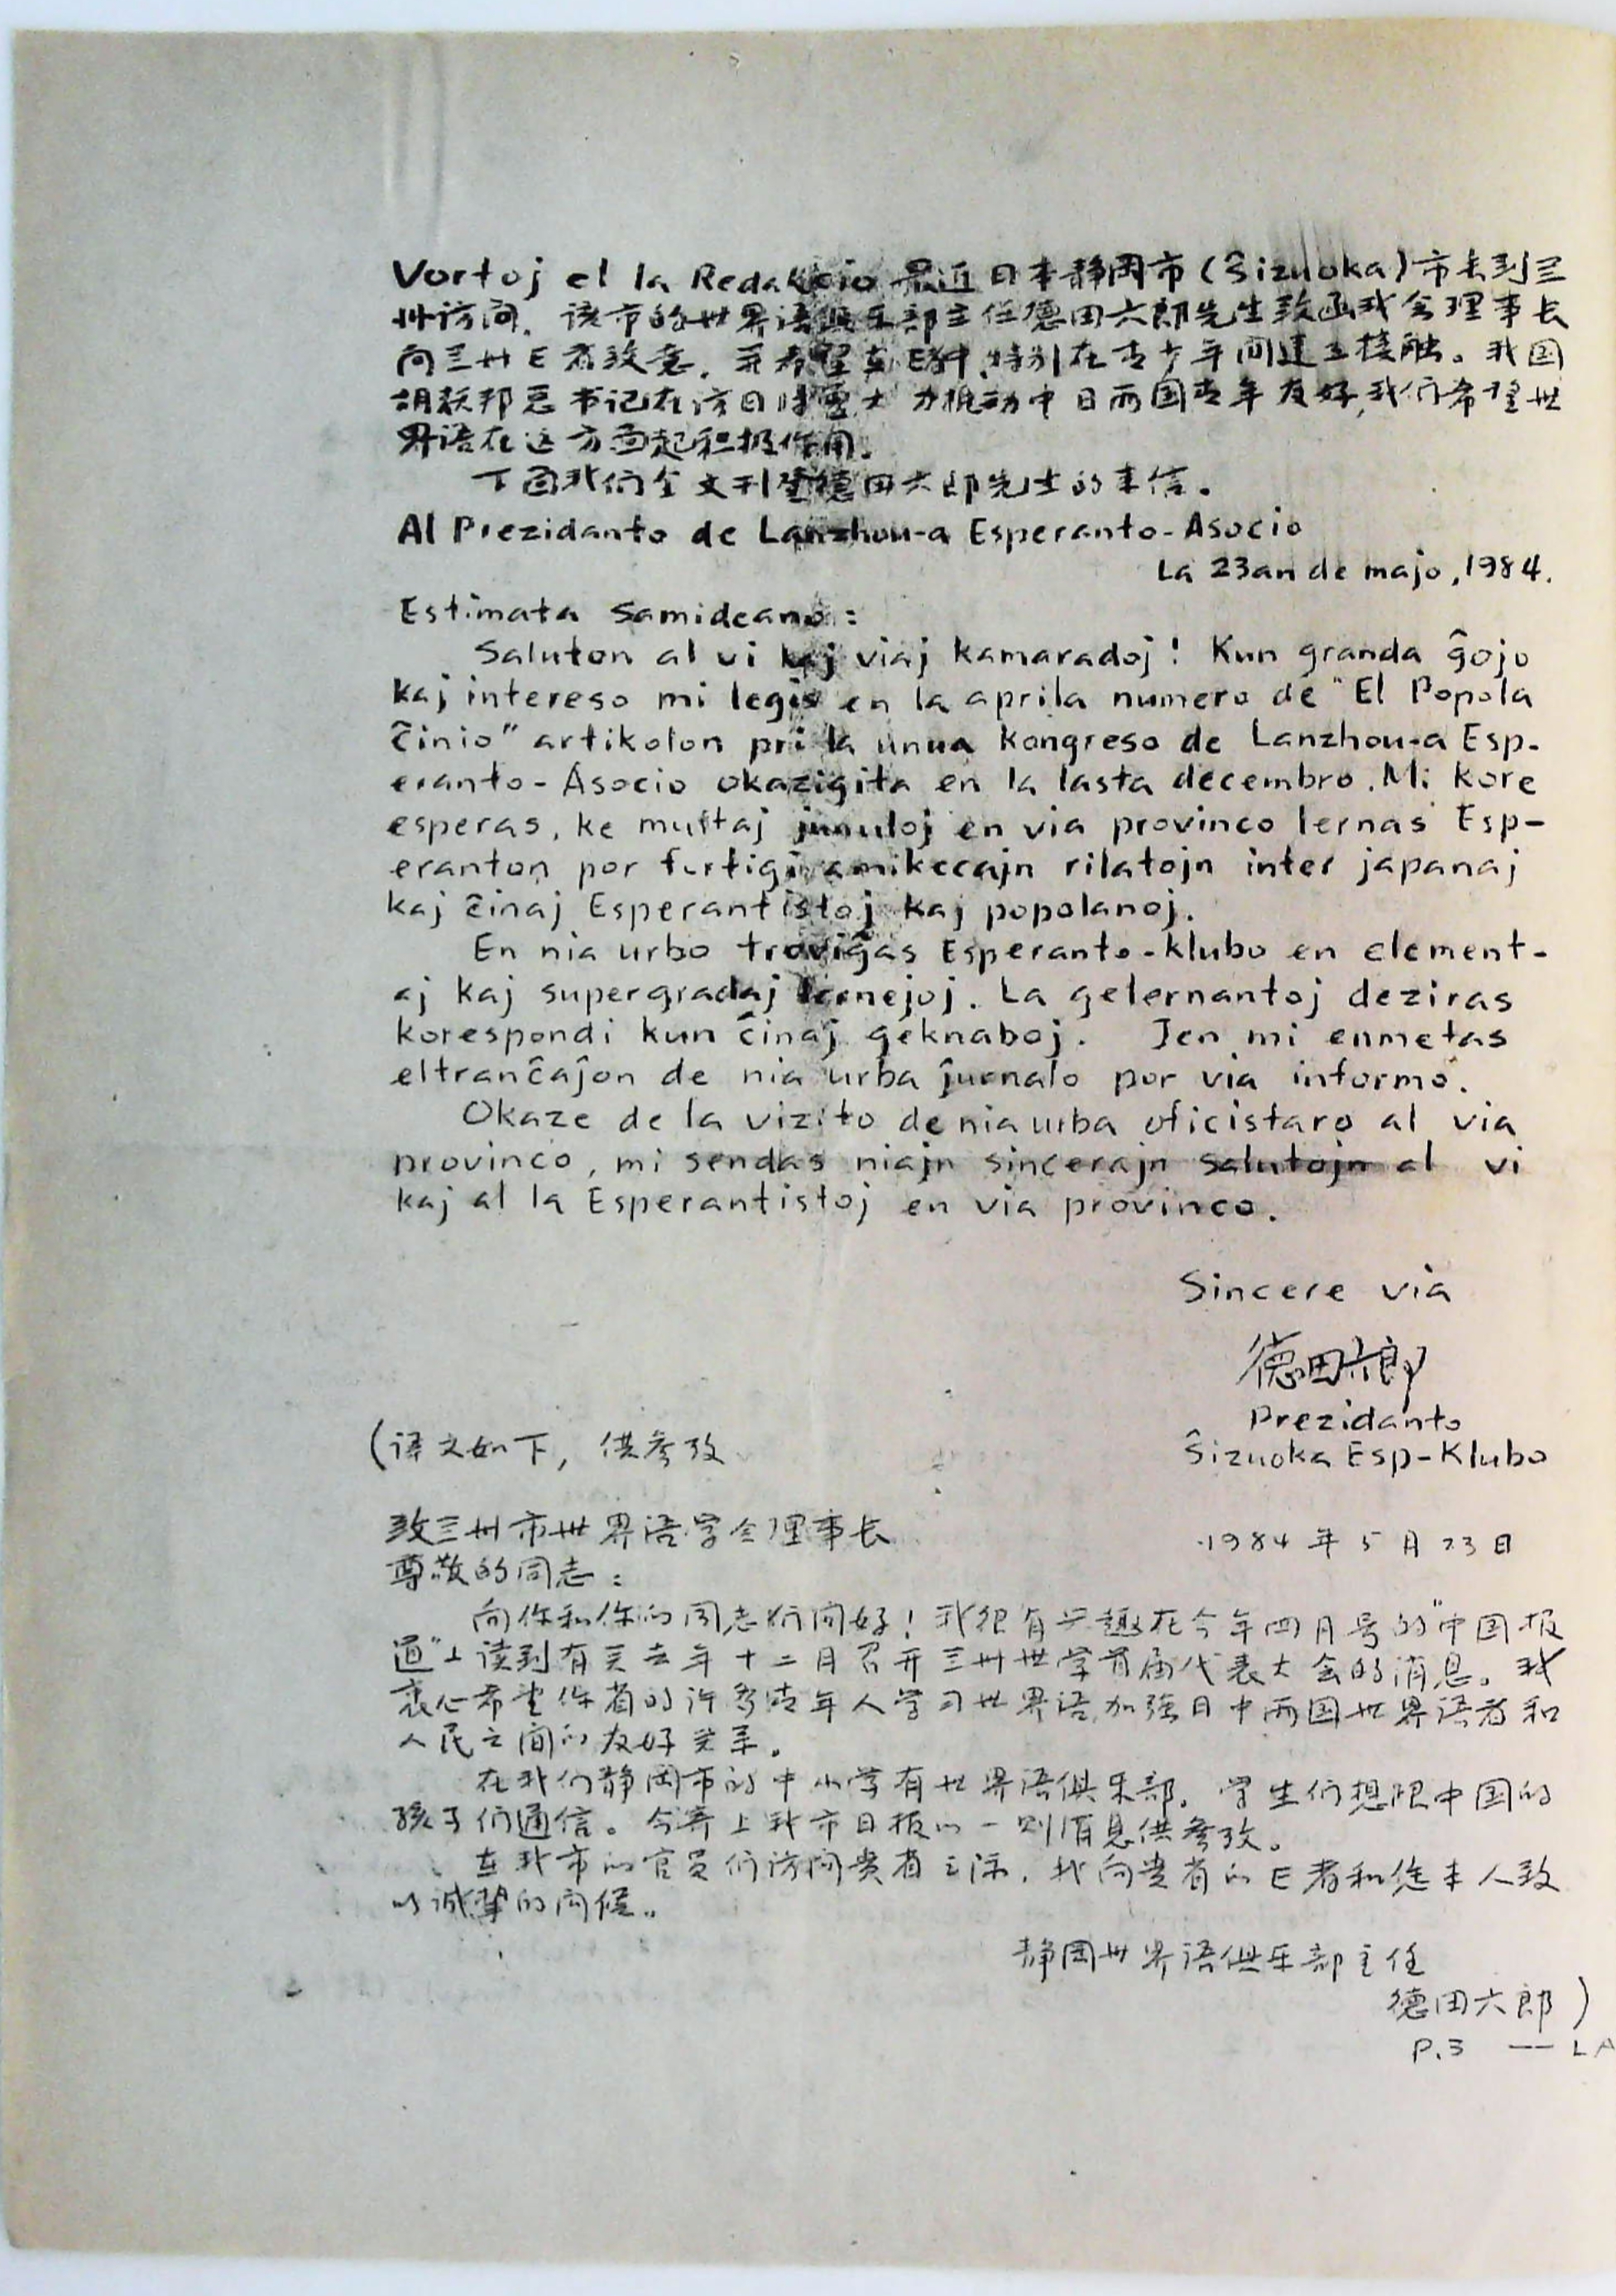 Vortoj el la Redakcio 最近日本静岡市(Ŝizuoka)市长到兰
州访问. 该市的世界语俱乐部主任德田六郎先生致函我会理事长
向兰州E者致意. 并希望在E者中,特别在青少年间建立接触。我国
胡耀邦总书记在访日时 大力推动中日两国青年友好,我们希望世
界语在这方面起积极作用.
下面我们全文刊登德田六郎先生的来信.
Al Prezidanto de Lanzhou-a Esperanto-Asocio
La 23an de majo, 1984.
Estimata samideano:
Saluton al vi kaj viaj kamaradoj! Kun granda ĝojo
kaj intereso mi legis en la aprila numero de "El Popola
Ĉinio" artikolon pri la unua kongreso de Lanzhou-a Esp-
eranto-Asocio okazigita en la lasta decembro. Mi kore
esperas, ke multaj junuloj en via provinco lernas Esp-
eranton por fortigi amikecajn rilatojn inter japanaj
kaj ĉinaj Esperantistoj kaj popolanoj.
En nia urbo troviĝas Esperanto-klubo en element-
aj kaj supergradaj lernejoj. La gelernantoj deziras
korespondi kun ĉinaj geknaboj. Jen mi enmetas
eltranĉaĵon de nia urba ĵurnalo por via informo.
Okaze de la vizito de nia urba oficistaro al via
provinco, mi sendas niajn sincerajn salutojn al vi
kaj al la Esperantistoj en via provinco.
Sincere via
德田六郎
Prezidanto
Ŝizuoka Esp-Klubo
(译文如下, 供参攷
致兰州市世界语学会理事长
1984年5月23日
尊敬的同志:
向你和你的同志们问好! 我很有兴趣在今年四月号的"中国报
道"上读到有关去年十二月召开兰州世学首届代表大会的消息。我
衷心希望你省的许多青年人学习世界语,加强日中两国世界语者和
人民之间的友好关系。
在我们静岡市的中小学有世界语俱乐部. 学生们想跟中国的
孩子们通信。今寄上我市日报的一则消息供参攷。
在我市的官员们访问贵省之际, 我向贵省的E者和您本人致
以诚挚的问候。
静岡世界语俱乐部主任
德田六郎)
P.3 — LA